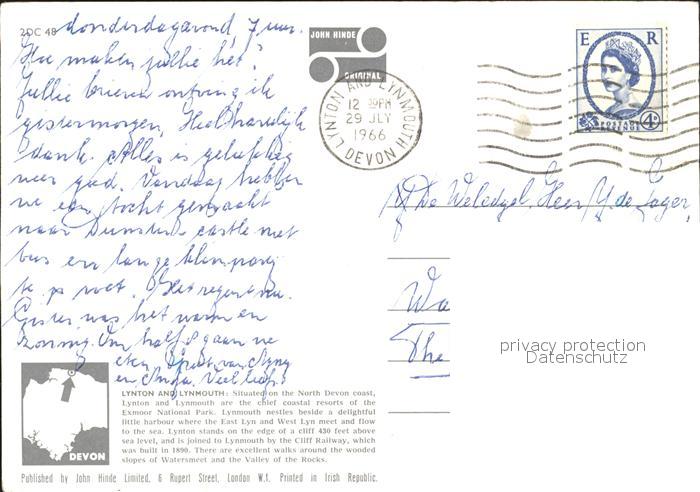 2DC 48
donderdagavond, 7 uur.
Hoe maken jullie het?
Jullie brieven ontving ik
gistermorgen, Heel hartelijk
dank. Alles is gelukkig
weer goed. Vandaag hebben
we een tocht gemaakt
naar Dunster castle met
bus en lange klimpartij
te voet. Het regent nu.
Gister was het warm en
zonnig. Om half 8 gaan we
eten.
en Anja. Veel liefs.
JOHN HINDE
ORIGINAL
LYNTON AND LYNMOUTH
12 30PM
29 JLY
1966
DEVON
E R
POSTAGE
REVENUE
4D
De Weledgel. Heer Y. de Jager,
Wa
The
privacy protection
Datenschutz
DEVON
LYNTON AND LYNMOUTH: Situated on the North Devon coast,
Lynton and Lynmouth are the chief coastal resorts of the
Exmoor National Park. Lynmouth nestles beside a delightful
little harbour where the East Lyn and West Lyn meet and flow
to the sea. Lynton stands on the edge of a cliff 430 feet above
sea level, and is joined to Lynmouth by the Cliff Railway, which
was built in 1890. There are excellent walks around the wooded
slopes of Watersmeet and the Valley of the Rocks.
Published by John Hinde Limited, 6 Rupert Street, London W.1. Printed in Irish Republic.